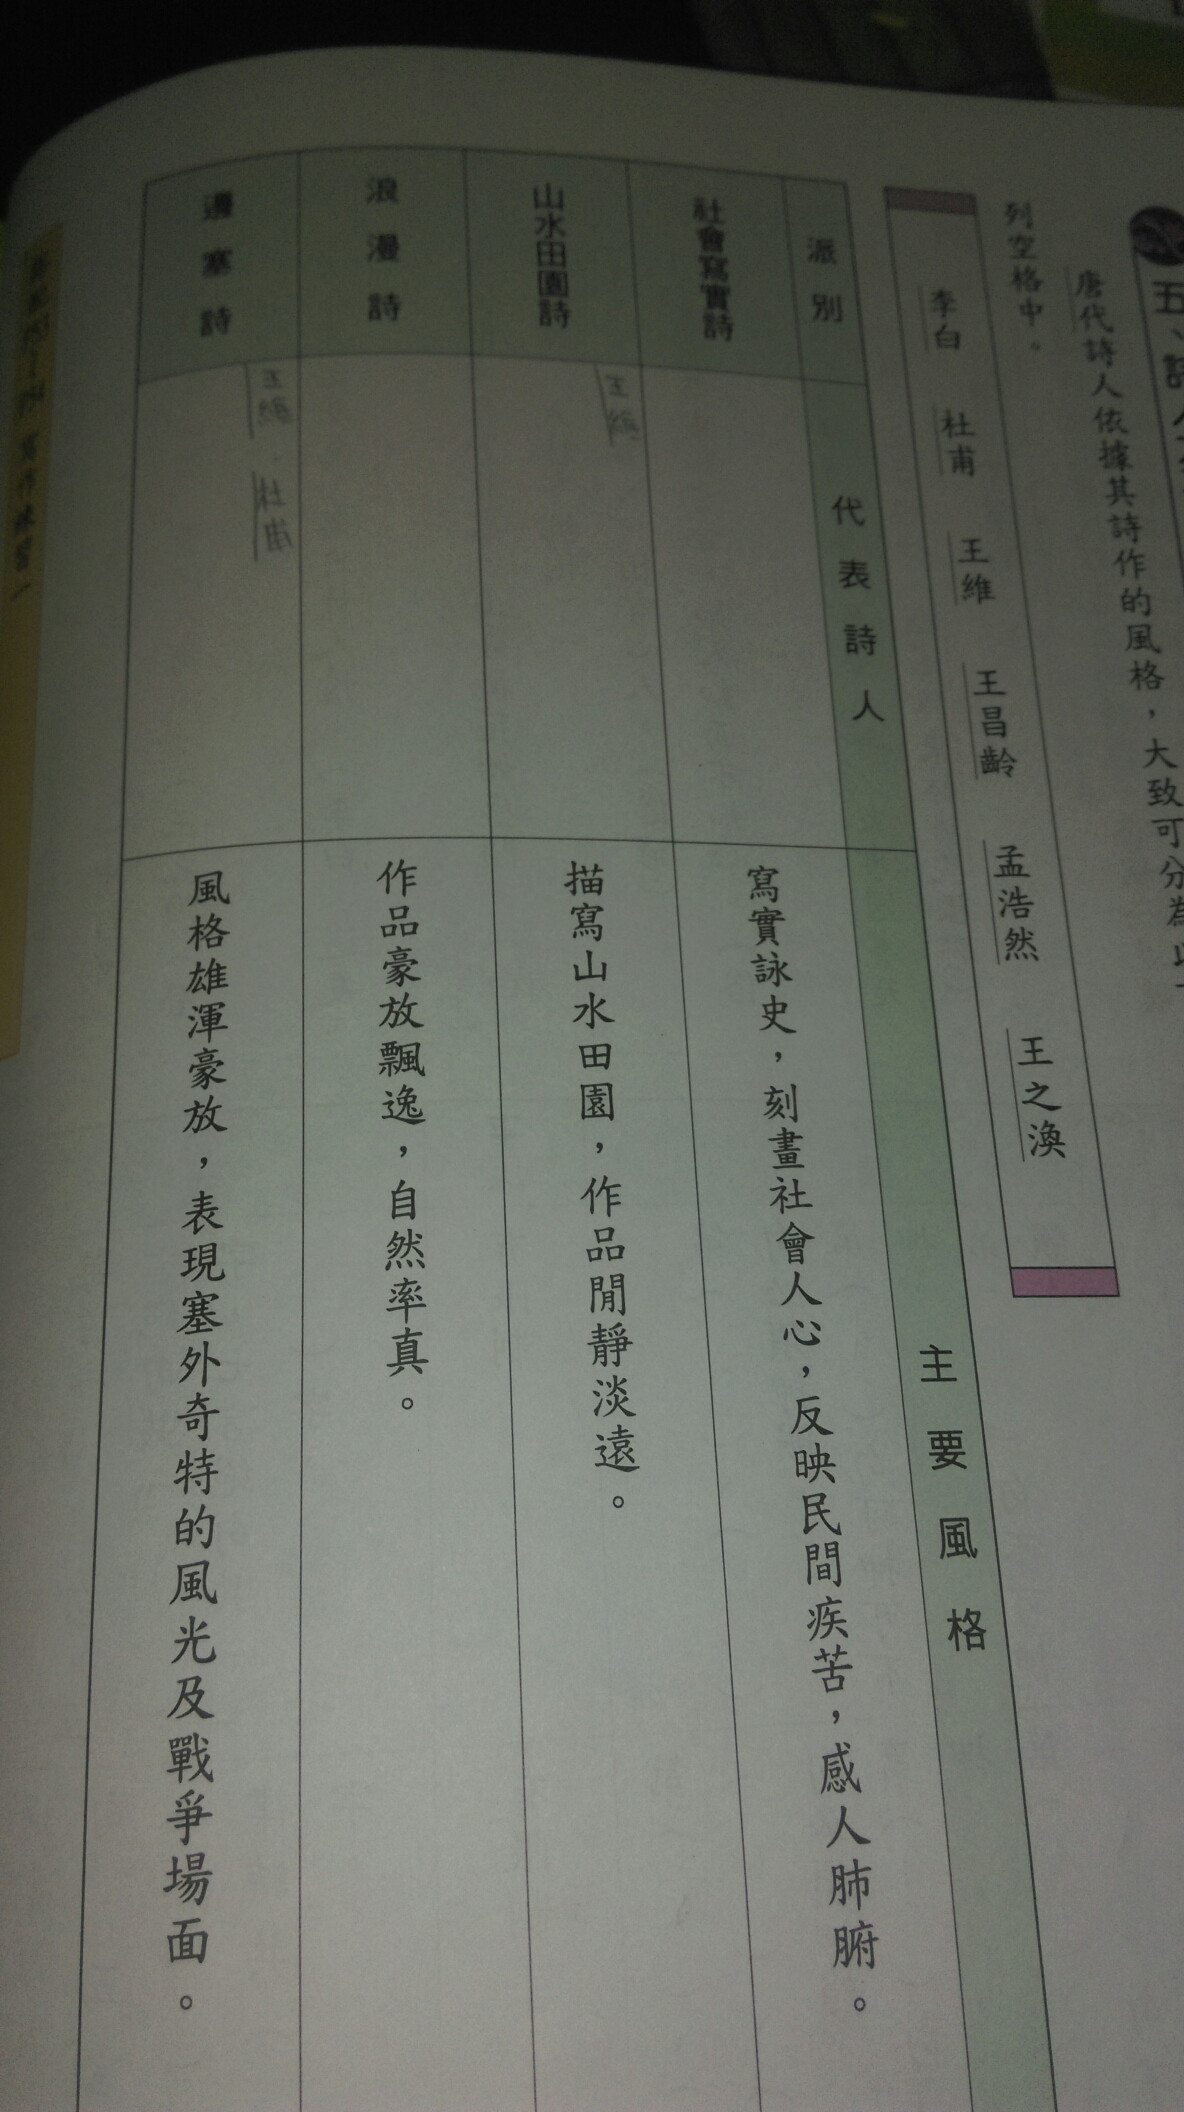 五、詩人
唐代詩人依據其詩作的風格，大致可分為以下
列空格中。
李白　杜甫　王維　王昌齡　孟浩然　王之渙
派別
代表詩人
主要風格
社會寫實詩
寫實詠史，刻畫社會人心，反映民間疾苦，感人肺腑。
山水田園詩
王維
描寫山水田園，作品閒靜淡遠。
浪漫詩
作品豪放飄逸，自然率真。
邊塞詩
杜甫
風格雄渾豪放，表現塞外奇特的風光及戰爭場面。
寫作練習一